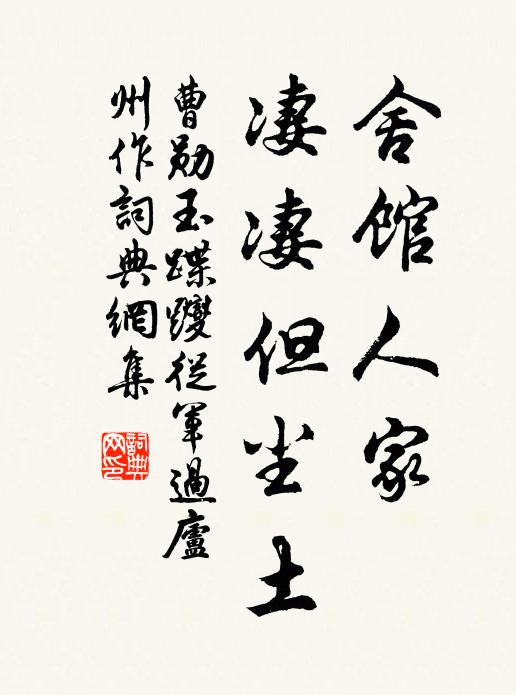 舍館人家
凄凄但尘土
曹勛玉蹀躞從軍過廬
州作詞典網集
詞典
网印